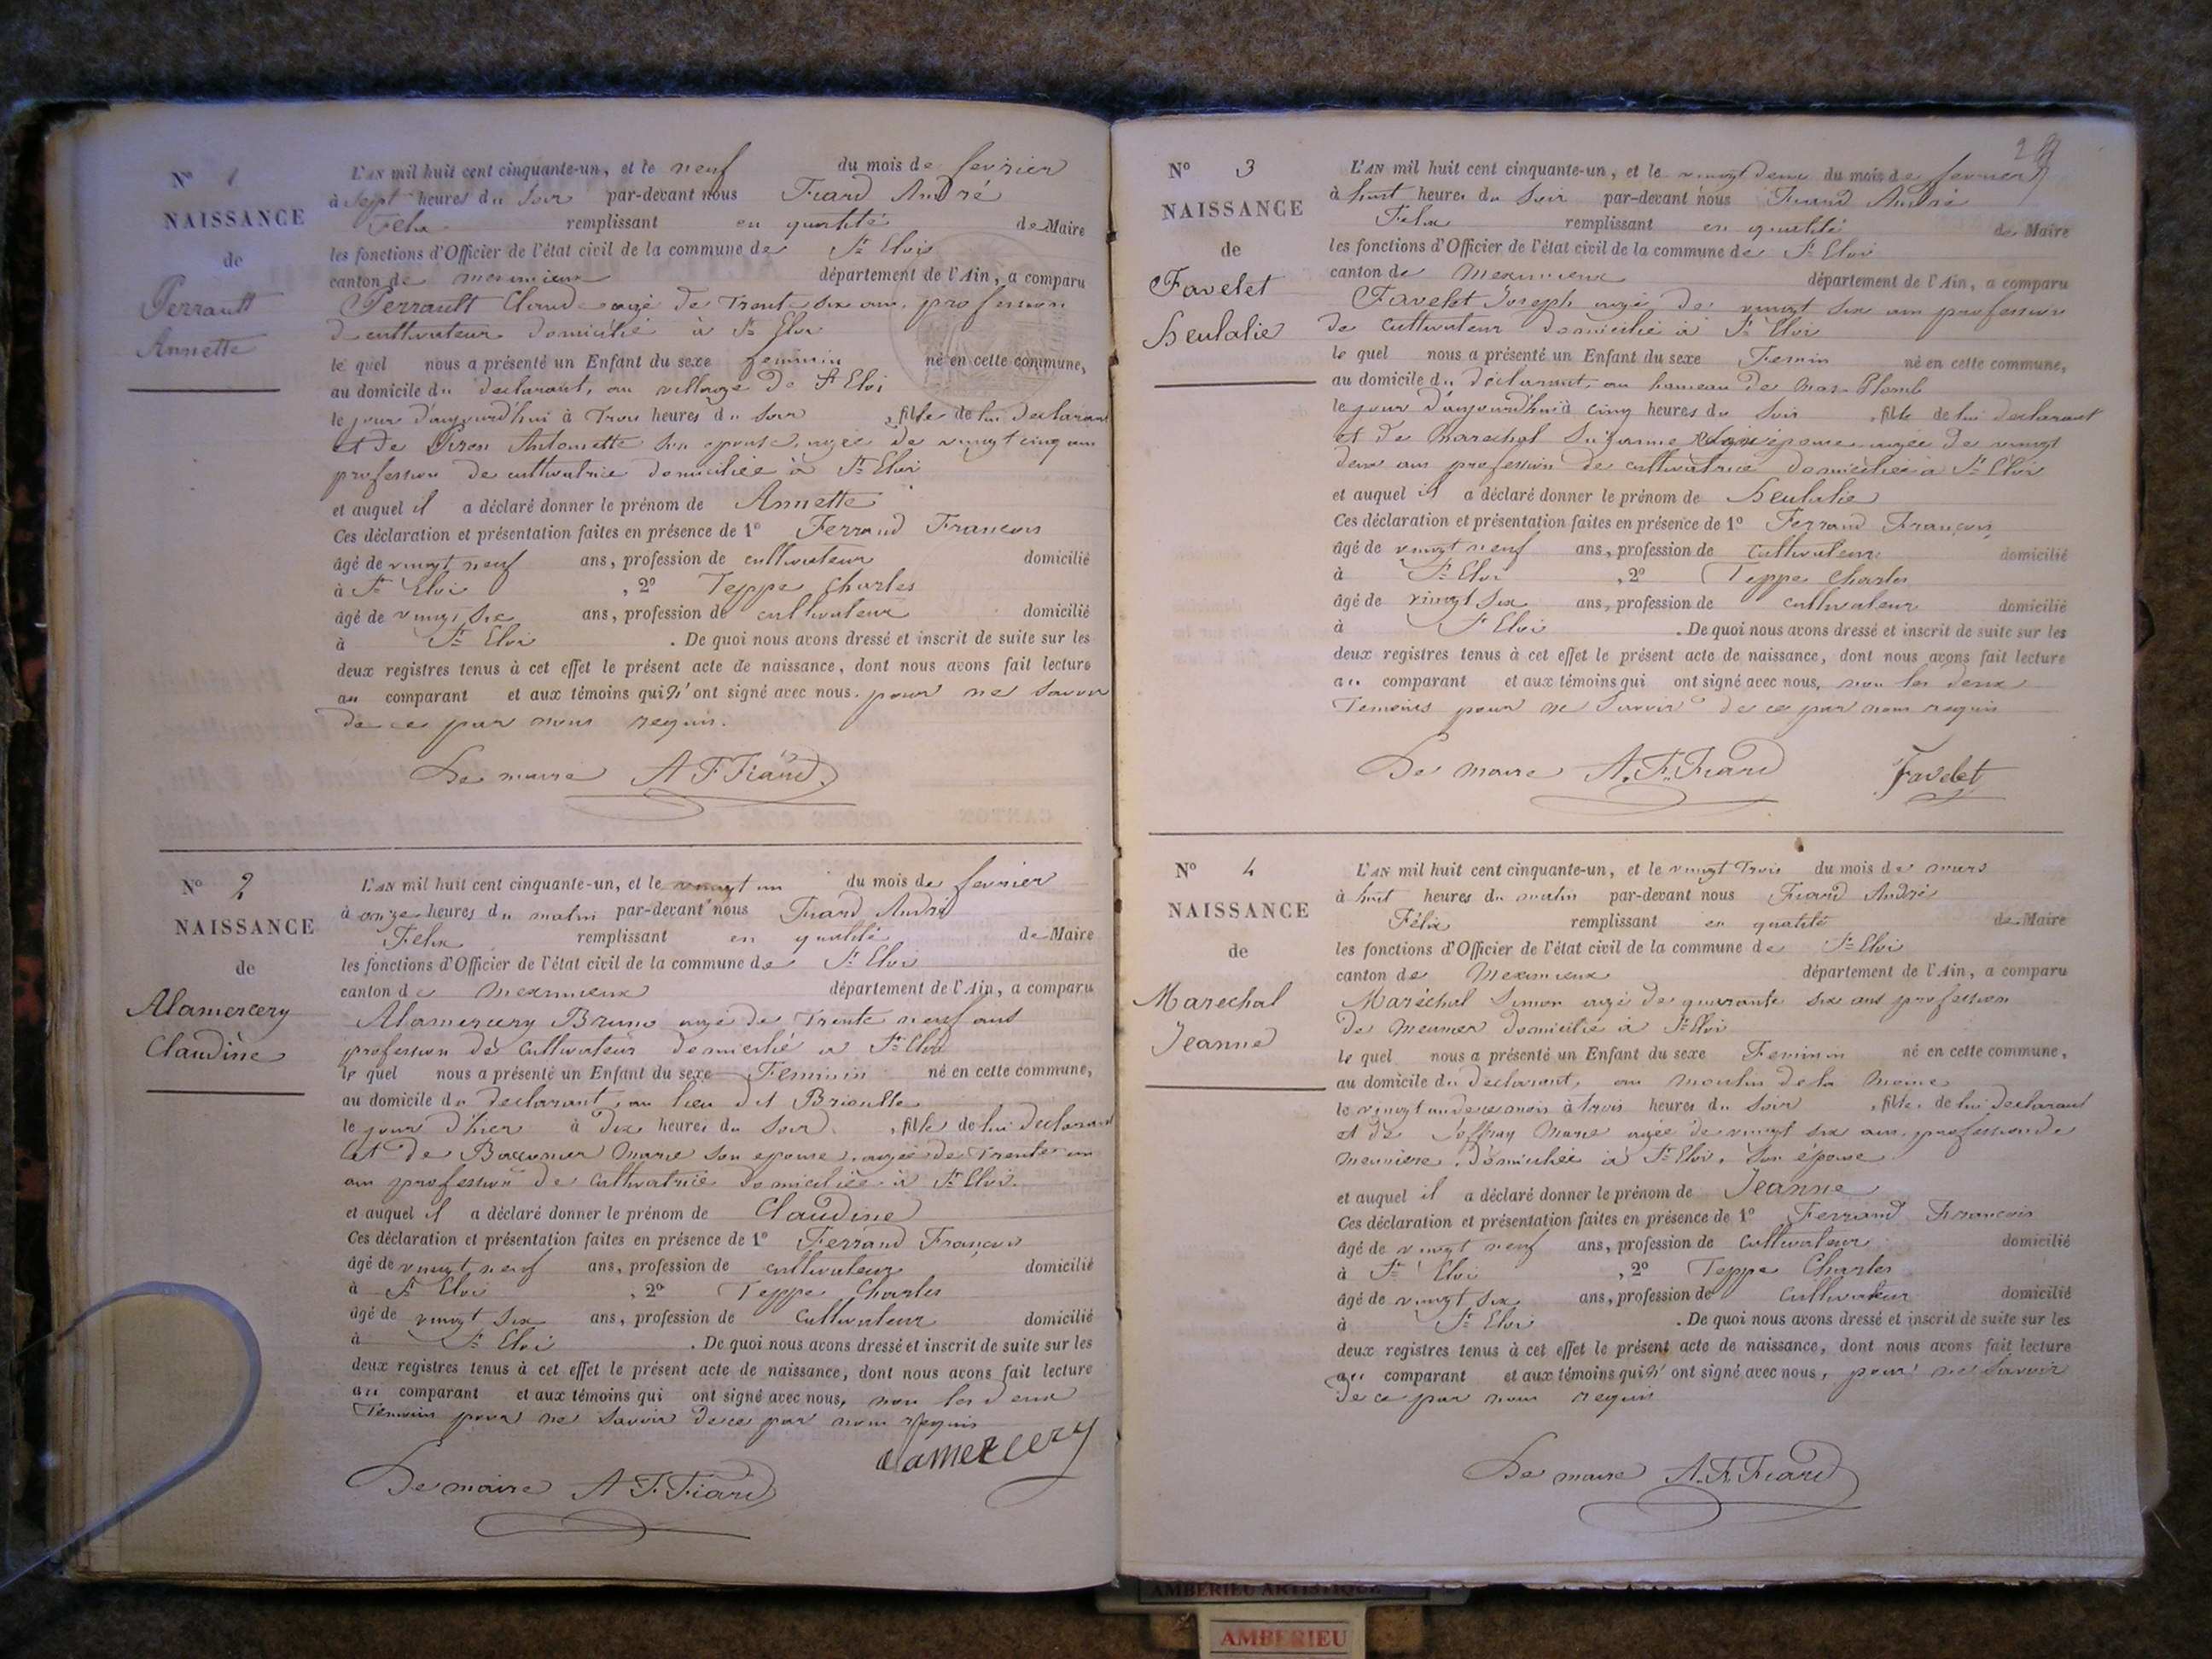 N° 1
NAISSANCE
de
Perrault
Annette
L'AN mil huit cent cinquante-un, et le neuf du mois de fevrier
à sept heures du soir par-devant nous Fiard André
Felix remplissant en qualité de Maire
les fonctions d'Officier de l'état civil de la commune de St Eloi
canton de meximieux département de l'Ain, a comparu
Perrault Claude agé de Trente six ans, profession
de cultivateur domicilié à St Eloi
le quel nous a présenté un Enfant du sexe feminin né en cette commune,
au domicile du declarant, au village de St Eloi
le jour d'aujourd'hui à Trois heures du soir, fille de lui declarant
et de Antoinette son epouse, agée de vingt cinq ans
profession de cultivatrice domiciliée à St Eloi
et auquel il a déclaré donner le prénom de Annette
Ces déclaration et présentation faites en présence de 1° Ferrand François
âgé de vingt neuf ans, profession de cultivateur domicilié
à St Eloi, 2° Teppe Charles
âgé de vingt six ans, profession de cultivateur domicilié
à St Eloi. De quoi nous avons dressé et inscrit de suite sur les
deux registres tenus à cet effet le présent acte de naissance, dont nous avons fait lecture
au comparant et aux témoins qui n'ont signé avec nous. pour ne savoir
de ce par nous requis.
Le maire A F Fiard
N° 2
NAISSANCE
de
Alamercery
Claudine
L'AN mil huit cent cinquante-un, et le vingt un du mois de fevrier
à onze heures du matin par-devant nous Fiard André
Felix remplissant en qualité de Maire
les fonctions d'Officier de l'état civil de la commune de St Eloi
canton de meximieux département de l'Ain, a comparu
Alamercery Bruno agé de Trente neuf ans
profession de cultivateur domicilié a St Eloi
le quel nous a présenté un Enfant du sexe Feminin né en cette commune,
au domicile du declarant, au lieu dit
le jour d'hier à dix heures du soir, fille de lui declarant
et de Marie son epouse, agée de trente un
ans profession de cultivatrice domiciliée à St Eloi.
et auquel il a déclaré donner le prénom de Claudine
Ces déclaration et présentation faites en présence de 1° Ferrand François
âgé de vingt neuf ans, profession de cultivateur domicilié
à St Eloi, 2° Teppe Charles
âgé de vingt six ans, profession de cultivateur domicilié
à St Eloi. De quoi nous avons dressé et inscrit de suite sur les
deux registres tenus à cet effet le présent acte de naissance, dont nous avons fait lecture
au comparant et aux témoins qui ont signé avec nous, non les deux
Temoins pour ne savoir de ce par nous requis
alamercery
Le maire A F. Fiard
N° 3
NAISSANCE
de
Favelet
Heulalie
L'AN mil huit cent cinquante-un, et le vingt deux du mois de fevrier
à huit heures du soir par-devant nous Fiard André
Felix remplissant en qualité de Maire
les fonctions d'Officier de l'état civil de la commune de St Eloi
canton de Meximieux département de l'Ain, a comparu
Favelet Joseph agé de vingt six ans profession
de cultivateur domicilié à St Eloi
le quel nous a présenté un Enfant du sexe Femin né en cette commune,
au domicile du déclarant au hameau de Mas-Plomb
le jour d'aujourd'hui à cinq heures du soir, fille de lui declarant
et de Marechal Suzanne epouse agée de vingt
deux ans profession de cultivatrice domiciliée à St Eloi
et auquel il a déclaré donner le prénom de Heulalie
Ces déclaration et présentation faites en présence de 1° Ferrand François,
âgé de vingt neuf ans, profession de cultivateur domicilié
à St Eloi, 2° Teppe Charles
âgé de vingt six ans, profession de cultivateur domicilié
à St Eloi. De quoi nous avons dressé et inscrit de suite sur les
deux registres tenus à cet effet le présent acte de naissance, dont nous avons fait lecture
au comparant et aux témoins qui ont signé avec nous, non les deux
Temoins pour ne savoir de ce par nous requis
Le maire A. F. Fiard Favelet
N° 4
NAISSANCE
de
Marechal
Jeanne
L'AN mil huit cent cinquante-un, et le vingt trois du mois de mars
à huit heures du matin par-devant nous Fiard André
Félix remplissant en qualité de Maire
les fonctions d'Officier de l'état civil de la commune de St Eloi
canton de Meximieux département de l'Ain, a comparu
Maréchal Simon agé de quarante six ans profession
de Meunier domicilié à St Eloi
le quel nous a présenté un Enfant du sexe Feminin né en cette commune,
au domicile du declarant, au moulin de la
le vingt un de ce mois à trois heures du soir, fille de lui declarant
et de Joffray Marie agée de vingt six ans, profession de
meuniere, domiciliée à St Eloi, son epouse
et auquel il a déclaré donner le prénom de Jeanne
Ces déclaration et présentation faites en présence de 1° Ferrand François
âgé de vingt neuf ans, profession de cultivateur domicilié
à St Eloi, 2° Teppe Charles
âgé de vingt six ans, profession de cultivateur domicilié
à St Eloi. De quoi nous avons dressé et inscrit de suite sur les
deux registres tenus à cet effet le présent acte de naissance, dont nous avons fait lecture
au comparant et aux témoins qui n'ont signé avec nous, pour ne savoir
de ce par nous requis
Le maire A. F. Fiard
AMBERIEU ARTISTIQUE
AMBERIEU